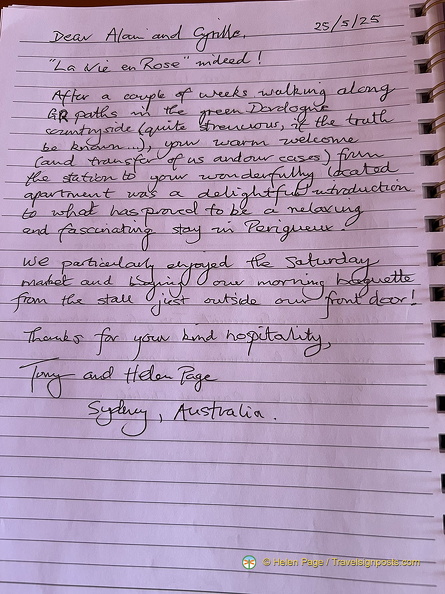 25/5/25
Dear Alain and Cyrille,
"La Vie en Rose" indeed!
After a couple of weeks walking along
GR paths in the green Dordogne
countryside (quite strenuous, if the truth
be known...), your warm welcome
(and transfer of us and our cases) from
the station to your wonderfully located
apartment was a delightful introduction
to what has proved to be a relaxing
and fascinating stay in Perigueux.
We particularly enjoyed the Saturday
market and buying our morning baguette
from the stall just outside our front door!
Thanks for your kind hospitality,
Tony and Helen Page
Sydney, Australia.
© Helen Page / Travelsignposts.com